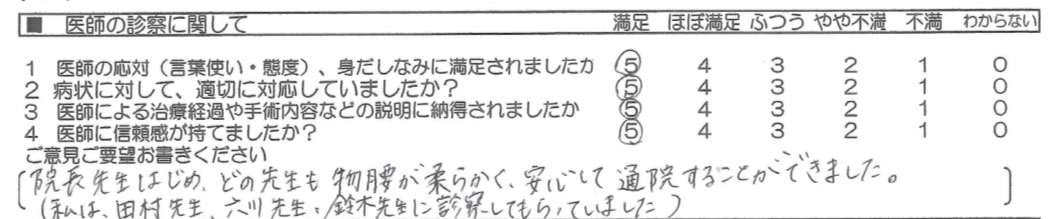 ■ 医師の診察に関して 満足 ほぼ満足 ふつう やや不満 不満 わからない
1 医師の応対（言葉使い・態度）、身だしなみに満足されましたか 5 4 3 2 1 0
2 病状に対して、適切に対応していましたか？ 5 4 3 2 1 0
3 医師による治療経過や手術内容などの説明に納得されましたか 5 4 3 2 1 0
4 医師に信頼感が持てましたか？ 5 4 3 2 1 0
ご意見ご要望お書きください
院長先生はじめ、どの先生も物腰が柔らかく、安心して通院することができました。
（私は、田村先生、六川先生、鈴木先生に診察してもらっていました）